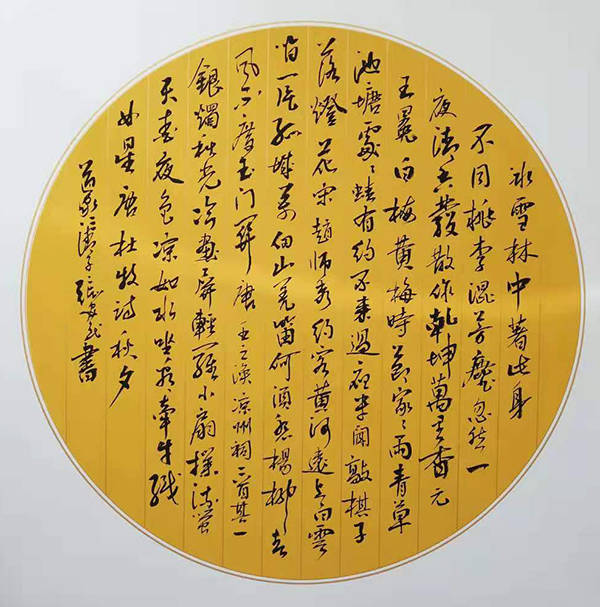 冰雪林中著此身
不同桃李混芳塵忽然一
夜清香發散作乾坤萬里香元
王冕白梅黃梅時節家〻雨青草
池塘處〻蛙有約不來過夜半閒敲棋子
落燈花宋趙師秀約客黃河遠上白雲
間一片孤城萬仞山羌笛何須怨楊柳春
風不度玉門關唐王之渙涼州詞二首其一
銀燭秋光冷畫屏輕羅小扇撲流螢
天夜色涼如水坐看牽牛織
女星唐杜牧詩秋夕
張書